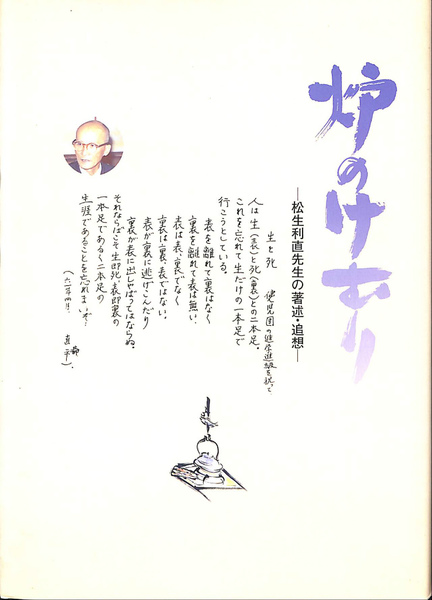 炉のけむり
―松生利直先生の著述・追想―
生と死
人は生(表)と死(裏)との二本足。
これを忘れて生だけの一本足で
行こうとしている。
表を離れて裏はなく
裏を離れて表は無い
表は表、裏でなく
裏は裏、表ではない。
表が裏に逃げこんだり
裏が表に出しゃばってはならぬ。
それならばこそ生即死、表即裏の
一本足である〱二本足の
生涯であることを忘れまい